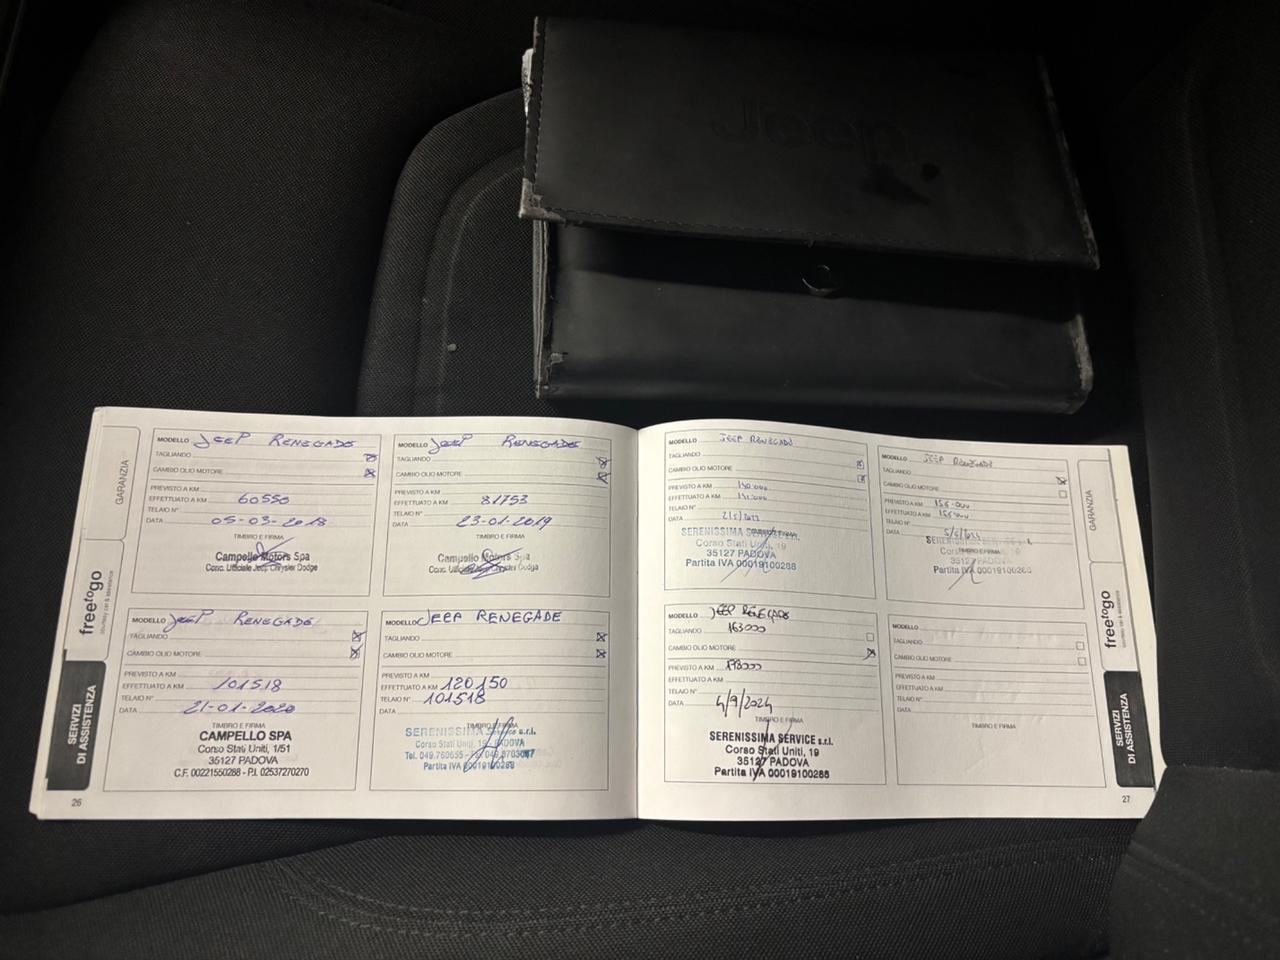 Jeep
GARANZIA
freetogo
courtesy car & assistance
SERVIZI
DI ASSISTENZA
26
MODELLO JEEP RENEGADE
TAGLIANDO
CAMBIO OLIO MOTORE
PREVISTO A KM
EFFETTUATO A KM 60550
TELAIO N°
DATA 05-03-2018
TIMBRO E FIRMA
Campello Motors Spa
Conc. Ufficiale Jeep Chrysler Dodge
MODELLO JEEP RENEGADE
TAGLIANDO
CAMBIO OLIO MOTORE
PREVISTO A KM
EFFETTUATO A KM 81753
TELAIO N°
DATA 23-01-2019
TIMBRO E FIRMA
Campello Motors Spa
Conc. Ufficiale Jeep Chrysler Dodge
MODELLO JEEP RENEGADE
TAGLIANDO
CAMBIO OLIO MOTORE
PREVISTO A KM
EFFETTUATO A KM 101518
TELAIO N°
DATA 21-01-2020
TIMBRO E FIRMA
CAMPELLO SPA
Corso Stati Uniti, 1/51
35127 PADOVA
C.F. 00221550288 - P.I. 02537270270
MODELLO JEEP RENEGADE
TAGLIANDO
CAMBIO OLIO MOTORE
PREVISTO A KM
EFFETTUATO A KM 120150
TELAIO N° 101518
DATA
TIMBRO E FIRMA
SERENISSIMA SERVICE s.r.l.
Corso Stati Uniti, 19 - PADOVA
Tel. 049.760655
Partita IVA 00019100288
MODELLO JEEP RENEGADE
TAGLIANDO
CAMBIO OLIO MOTORE
PREVISTO A KM
EFFETTUATO A KM
TELAIO N°
DATA
TIMBRO E FIRMA
SERENISSIMA SERVICE s.r.l.
Corso Stati Uniti, 19
35127 PADOVA
Partita IVA 00019100288
MODELLO JEEP RENEGADE
TAGLIANDO
CAMBIO OLIO MOTORE
PREVISTO A KM 155.000
EFFETTUATO A KM 155.000
TELAIO N°
DATA
TIMBRO E FIRMA
SERENISSIMA SERVICE s.r.l.
35127 PADOVA
Partita IVA 00019100288
MODELLO JEEP RENEGADE
TAGLIANDO 163000
CAMBIO OLIO MOTORE
PREVISTO A KM 178000
EFFETTUATO A KM
TELAIO N°
DATA 4/9/2024
TIMBRO E FIRMA
SERENISSIMA SERVICE s.r.l.
Corso Stati Uniti, 19
35127 PADOVA
Partita IVA 00019100288
MODELLO
TAGLIANDO
CAMBIO OLIO MOTORE
PREVISTO A KM
EFFETTUATO A KM
TELAIO N°
DATA
TIMBRO E FIRMA
GARANZIA
freetogo
courtesy car & assistance
SERVIZI
DI ASSISTENZA
27